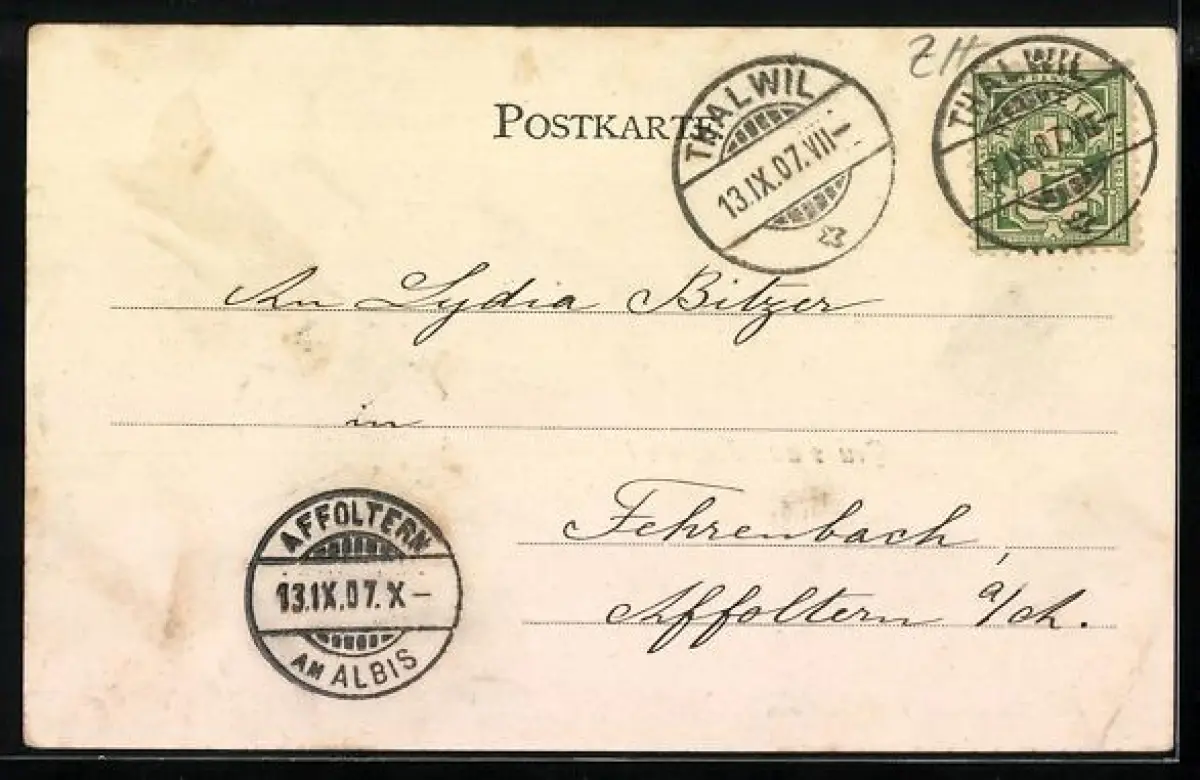 ZH
POSTKARTE
THALWIL
13.IX.07.VII–
THALWIL
13.IX.07.VII–
An Lydia Bitzer
in
Fehrenbach,
Affoltern a/A.
AFFOLTERN
13.IX.07.X–
AM ALBIS